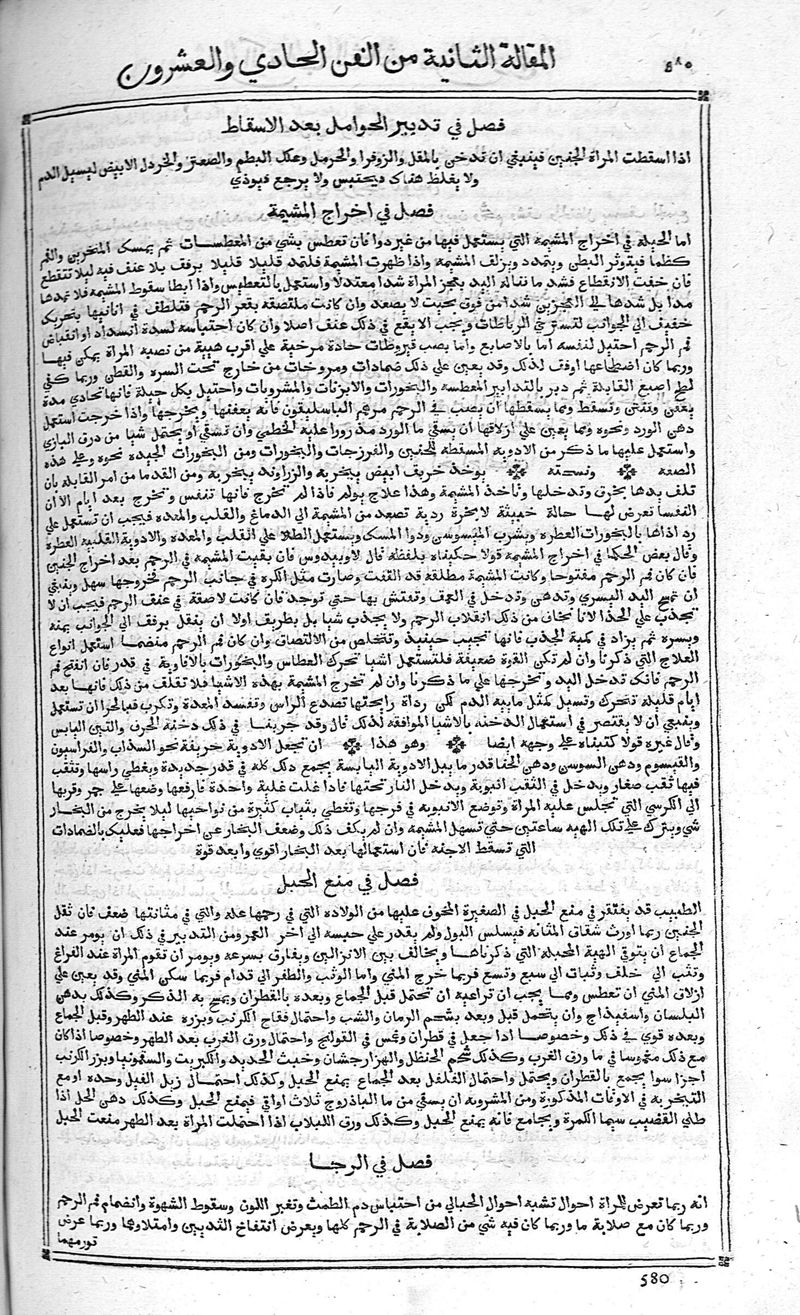 ٥٨٠
المقالة الثانية من الفن الحادي والعشرون
فصل في تدبير الحوامل بعد الاسقاط
اذا اسقطت المراة الجنين فينبغي ان تدخن بالمقل والزوفرا والحرمل وعلك البطم والصعتر والخردل الابيض ليسيل الدم
ولا يغلظ هناك فيحتبس ولا يرجع فيوذي
فصل في اخراج المشيمة
اما الحيلة في اخراج المشيمة التي يستعمل فيها من غير دوا فان تعطس بشي من المعطسات ثم يمسك المنخرين والفم
كظما فيتوتر البطن ويتمدد ويزلف المشيمه واذا ظهرت المشيمة فلتمد قليلا قليلا برفف بلا عنف فيه ليلا تنقطع
فان خفت الانقطاع فشد ما تناله اليد بفخذ المراة شدا معتدلا واستعمل بالتعطيس واذا ابطا سقوط المشيمه فلا تمدها
مدا بل شدها الي الفخذين شدا من فوق بحيث لا يصعد وان كانت ملتصقه بقعر الرحم فتلطف في ابانتها بتحريك
خفيف الي الجوانب لتسترخي الرباطات ويجب الا يقع في ذلك عنف اصلا وان كان احتباسه لسدة انسداد او انقباض
فم الرحم احتيل لنفسه اما بالاصابع واما بصب قيروطات حادة مرخية علي اقرب هيية من نصبه المراة يمكن فيها
وربما كان اضطجاعها اوفف لذلك وقد يعين علي ذلك ضمادات ومروخات من خارج تحت السره والقطن وربما كفي
لطخ اصبع القابلة ثم دبر بالتدابير المعطسه والبخورات والابزنات والمشروبات واحتيل بكل حيلة فانها تحادي مدة
يعفن وتنفتى وتسقط ومما يسقطها ان يصب في الرحم مرهم الباسليقون فانه يعفنها ويخرجها واذا خرجت استعمل
دهن الورد ونحوه ومما يعين علي ازلاقها ان يسقي ما الورد مذرورا عليه الخطمي وان تسقي او يحتمل شيا من درق البازي
واستعمل عليها ما ذكر من الادوية المسقطة للجنين والفرزجات والبخورات ومن البخورات الجيده نحوه وعلي هذه
الصفه ونسخته يوخذ خربف ابيض يبخر به والزراوند يبخر به ومن القدما من امر القابله بان
تلف يدها بخرق وتدخلها وتاخذ المشيمة وهذا علاج يولم فاذا لم تخرج فانها تنفس وتخرج بعد ايام الا ان
النفسا تعرض لها حالة خبيثة لابخرة ردية تصعد من المشيمة الي الدماغ والقلب والمعده فيجب ان تستعمل علي
رد اذاها بالبخورات العطره وبشرب الميسوسن ودوا المسك ويستعمل الطلا علي القلب والمعده والادوية القلبية العطره
وقال بعض الحكما في اخراج المشيمه قولا حكيناه بلفظه قال لاوييدوس فان بقيت المشيمه في الرحم بعد اخراج الجنين
فان كان فم الرحم مفتوحا وكانت المشيمة مطلقه قد التفت وصارت مثل الكره في جانب الرحم فخروجها سهل وينبغي
ان تمسح اليد اليسري وتدهن وتدخل في العمف وتفتش بها حتي توجد فان كانت لاصقة في عنف الرحم فيجب ان لا
تجذب علي الحذا لانا نخاف من ذلك انقلاب الرحم ولا يجذب شيا بل بطريف اولا ان ينقل برفف الي الجوانب يمنه
ويسره ثم يزاد في كمية الجذب فانها تجيب حينيذ وتتخلص من الالتصاق وان كان فم الرحم منضما استعمل انواع
العلاج التي ذكرنا وان لم تكن القوة ضعيفة فلتستعمل اشيا تحرك العطاس والبخورات بالافاوية في قدر فان انفتح فم
الرحم فانك تدخل اليد وتخرجها علي ما ذكرنا وان لم تخرج المشيمة بهذه الاشيا فلا تقلق من ذلك فانها بعد
ايام قليلة تتحرك وتسيل كمثل مايية الدم لكن رداة رايحتها تصدع الراس وتفسد المعدة وتكرب فبالحرا ان تستعمل
وينبغي ان لا يقتصر في استعمال الدخنه بالاشيا الموافقه لذلك قال وقد جربنا في ذلك دخنة الحرف والتين اليابس
وقال غيره قولا كتبناه علي وجهه ايضا وهو هذا ان تجعل الادوية حريفة نحو السذاب والفراسيون
والقيسوم ودهن السوسن ودهن الحنا قدر ما يبل الادوية اليابسة يجمع ذلك كله في قدر جديدة ويغطي راسها وتثقب
فيها ثقب صغار ويدخل في الثقب انبوبة ويدخل النار تحتها فاذا غلت غلية واحدة فارفعها وضعها علي جمر وقربها
الي الكرسي التي تجلس عليه المراة وتوضع الانبوبه في فرجها وتغطي بثياب كثيرة من نواحيها ليلا يخرج من البخار
شي ويترك علي تلك الهيه ساعتين حتي تسهل المشيمه وان لم يكف ذلك وضعف البخار عن اخراجها فعليك بالضمادات
التي تسقط الاجنه فان استعمالها بعد البخار اقوي وابعد قوة
فصل في منع الحبل
الطبيب قد يفتقر في منع الحبل في الصغيرة المخوف عليها من الولاده التي في رحمها علة والتي في مثانتها ضعف فان ثقل
الجنين ربما اورث شقاق المثانه فيسلس البول ولم يقدر علي حبسه الي اخر العمر ومن التدبير في ذلك ان يومر عند
الجماع ان يتوقي الهية المحبلة التي ذكرناها ويخالف بين الانزالين ويفارق بسرعه ويومر ان تقوم المراة عند الفراغ
وتثب الي خلف وثبات الي سبع وتسع فربما خرج المني واما الوثب والطفر الي قدام فربما سكن المني وقد يعين علي
ازلاق المني ان تعطس ومما يجب ان تراعيه ان تحتمل قبل الجماع وبعده بالقطران ويمسح به الذكر وكذلك بدهن
البلسان واسفيداج وان يتحمل قبل وبعد بشحم الرمان والشب واحتمال فقاح الكرنب وبزره عند الطهر وقبل الجماع
وبعده قوي في ذلك وخصوصا اذا جعل في قطران وغمس في الفوتنج واحتمال ورق الغرب بعد الطهر وخصوصا اذا كان
مع ذلك مغموسا في ما ورق الغرب وكذلك شحم الحنظل والهزارجشان وخبث الحديد والكبريت والسقمونيا وبزر الكرنب
اجزا سوا يجمع بالقطران ويحتمل واحتمال الفلفل بعد الجماع يمنع الحبل وكذلك احتمال زبل الفيل وحده او مع
التبخر به في الاوقات المذكورة ومن المشروبه ان يسقي من ما الباذروج ثلاث اواقي فيمنع الحبل وكذلك دهن الحل اذا
طلي القضيب سيما الكمرة ويجامع فانه يمنع الحبل وكذلك ورق اللبلاب اذا احتملت المراة بعد الطهر منعت الحبل
فصل في الرجا
انه ربما تعرض للمراة احوال تشبه احوال الحبالي من احتباس دم الطمث وتغير اللون وسقوط الشهوة وانضمام فم الرحم
وربما كان مع صلابة ما وربما كان فيه شي من الصلابة في الرحم كلها ويعرض انتفاخ الثديين وامتلاوهما وربما عرض
تورمهما
580